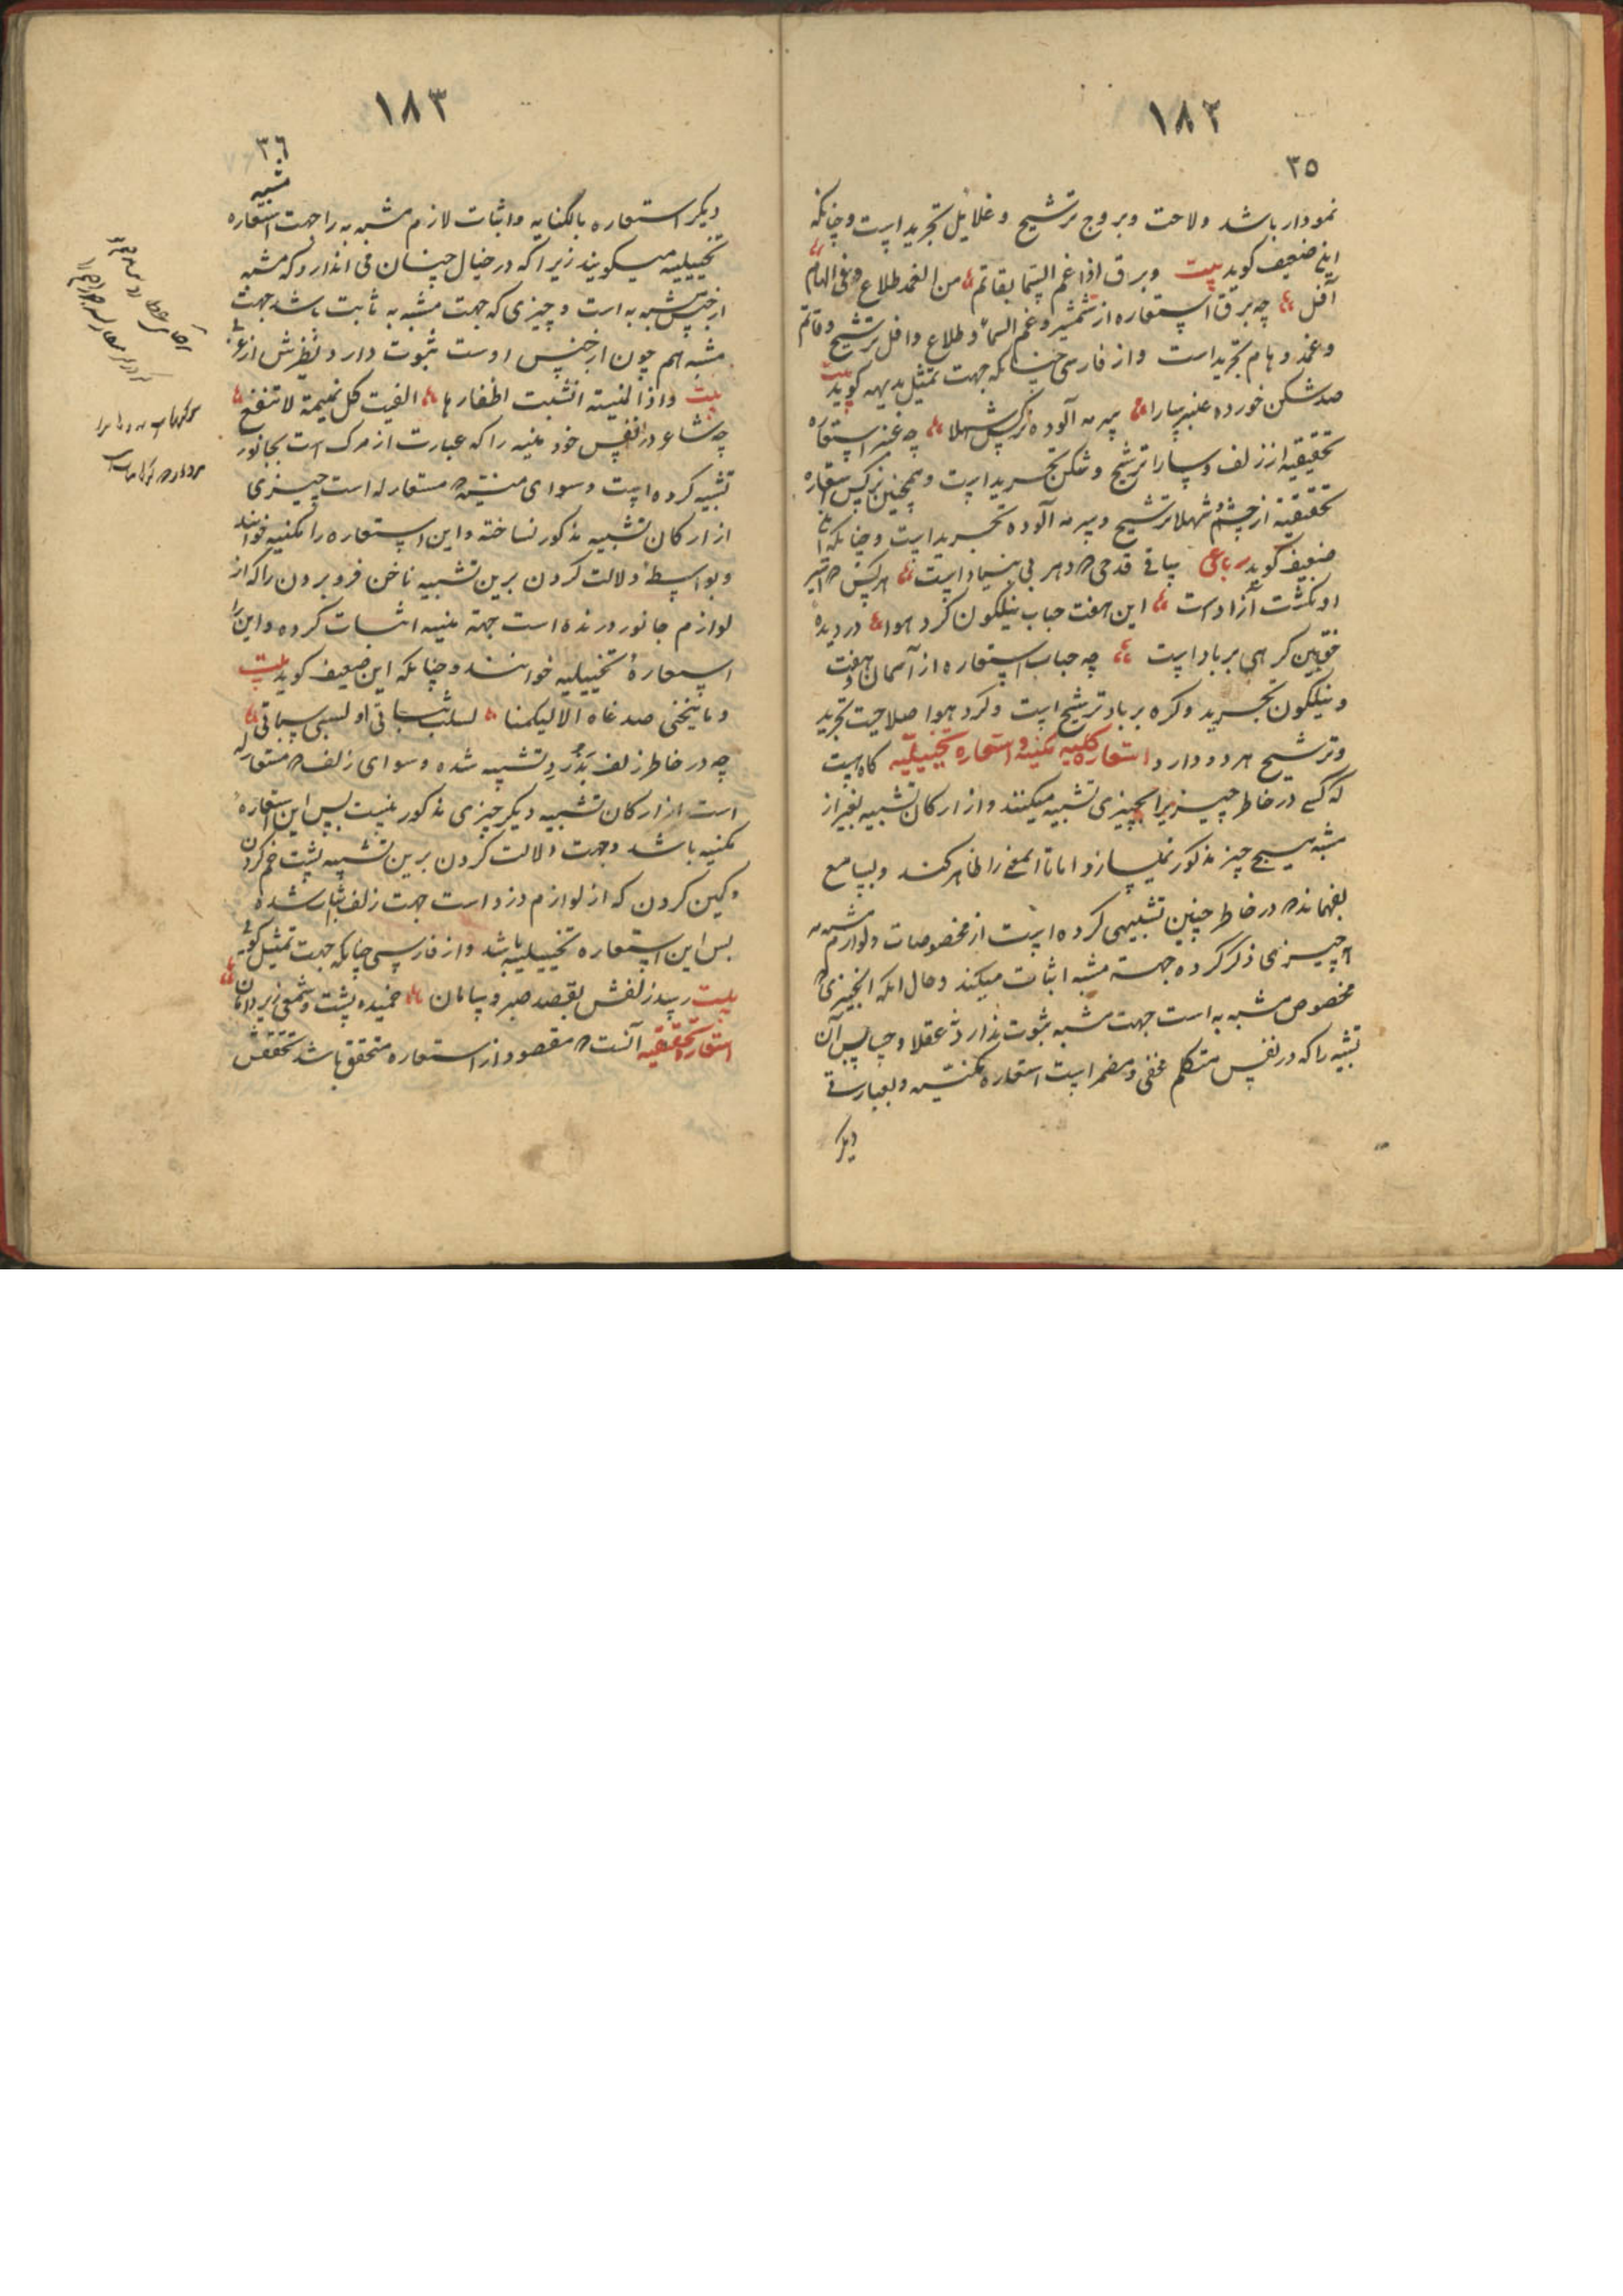 ١٨٢
٣٥
نمودار باشد ولاحت وبروج ترشیح و غلایل تجرید است وچنانکه
این ضعیف کوید بیت وبرق اذا غم السما بقاتم من الغمد طلاع وفی الهام
آفل چه برق استعاره از شمشیر وغم السما و طلاع وافل ترشیح وقاتم
وغمد وهام تجرید است واز فارسی چنانکه جهت تمثیل بدیهه کوید بیت
صد شکن خورده عنبر سارا سرمه آلوده نرکس شهلا چه عنبر استعاره
تحقیقیه از زلف وسارا ترشیح وشکن تجرید است وهمچنین نرکس استعاره
تحقیقیه از چشم وشهلا ترشیح وسرمه آلوده تجرید است وچنانکه این
ضعیف کوید رباعی ساقی قدحی که دهر بی بنیاد است هرکس که اسیر
او نکشت آزاد است این هفت حباب نیلکون کرد هوا در دیده
حق بین کرهی بر باد است چه حباب استعاره از آسمان وهفت
ونیلکون تجرید وکره بر باد ترشیح است وکرد هوا صلاحیت تجرید
وترشیح هر دو دارد استعاره مکنیه واستعاره تخییلیه کاه است
که کسی در خاطر چیزیرا بچیزی تشبیه میکنند واز ارکان تشبیه بغیر از
مشبه هیچ چیز مذکور نمیسازد اما تا المعنی را ظاهر کند وبسامع
بفهماند که در خاطر چنین تشبیهی کرده است از مخصوصات ولوازم مشبه به
چیزی ذکر کرده جهت مشبه اثبات میکند وحال انکه انچیزی که
مخصوص مشبه به است جهت مشبه ثبوت ندارد عقلا وحسا پس آن
تشبیه را که در نفس متکلم مخفی ومضمر است استعاره مکنیه وبعبارتی
دیکر
١٨٣
٣٦
دیکر استعاره بالکنایه واثبات لازم مشبه به را جهت مشبه استعاره
تخییلیه میکویند زیرا که در خیال چنان می اندازد که مشبه
از جنس مشبه به است وچیزی که جهت مشبه به ثابت باشد جهت
مشبه هم چون از جنس اوست ثبوت دارد نظیرش از عربی
بیت واذا المنیة انشبت اظفارها الفیت کل تمیمة لا تنفع
چه شاعر در نفس خود منیه را که عبارت از مرک است بجانور
تشبیه کرده است وسوای منیه که مستعار له است چیزی
از ارکان تشبیه مذکور نساخته واین استعاره را مکنیه خوانند
وبواسطه دلالت کردن برین تشبیه ناخن فرو بردن را که از
لوازم جانور درنده است جهة منیه اثبات کرده واین را
استعارهٔ تخییلیه خوانند وچنانکه این ضعیف کوید بیت
وما ینحنی صدغاه الا لیکمنا لسلب ثباتی او لسبی سباتی
چه در خاطر زلف بدزد تشبیه شده وسوای زلف که مستعار له
است از ارکان تشبیه دیکر چیزی مذکور نیست پس این استعارهٔ
مکنیه باشد وجهت دلالت کردن برین تشبیه پشت خم کردن
وکمین کردن که از لوازم دزد است جهت زلف ثابت شده
پس این استعاره تخییلیه باشد واز فارسی چنانکه جهت تمثیل کوید
بیت رسید زلفش بقصد صبر وسامان خمیده پشت وشمعی زیر دامان
استعاره تحقیقیه آنست که مقصود از استعاره متحقق باشد تحققش